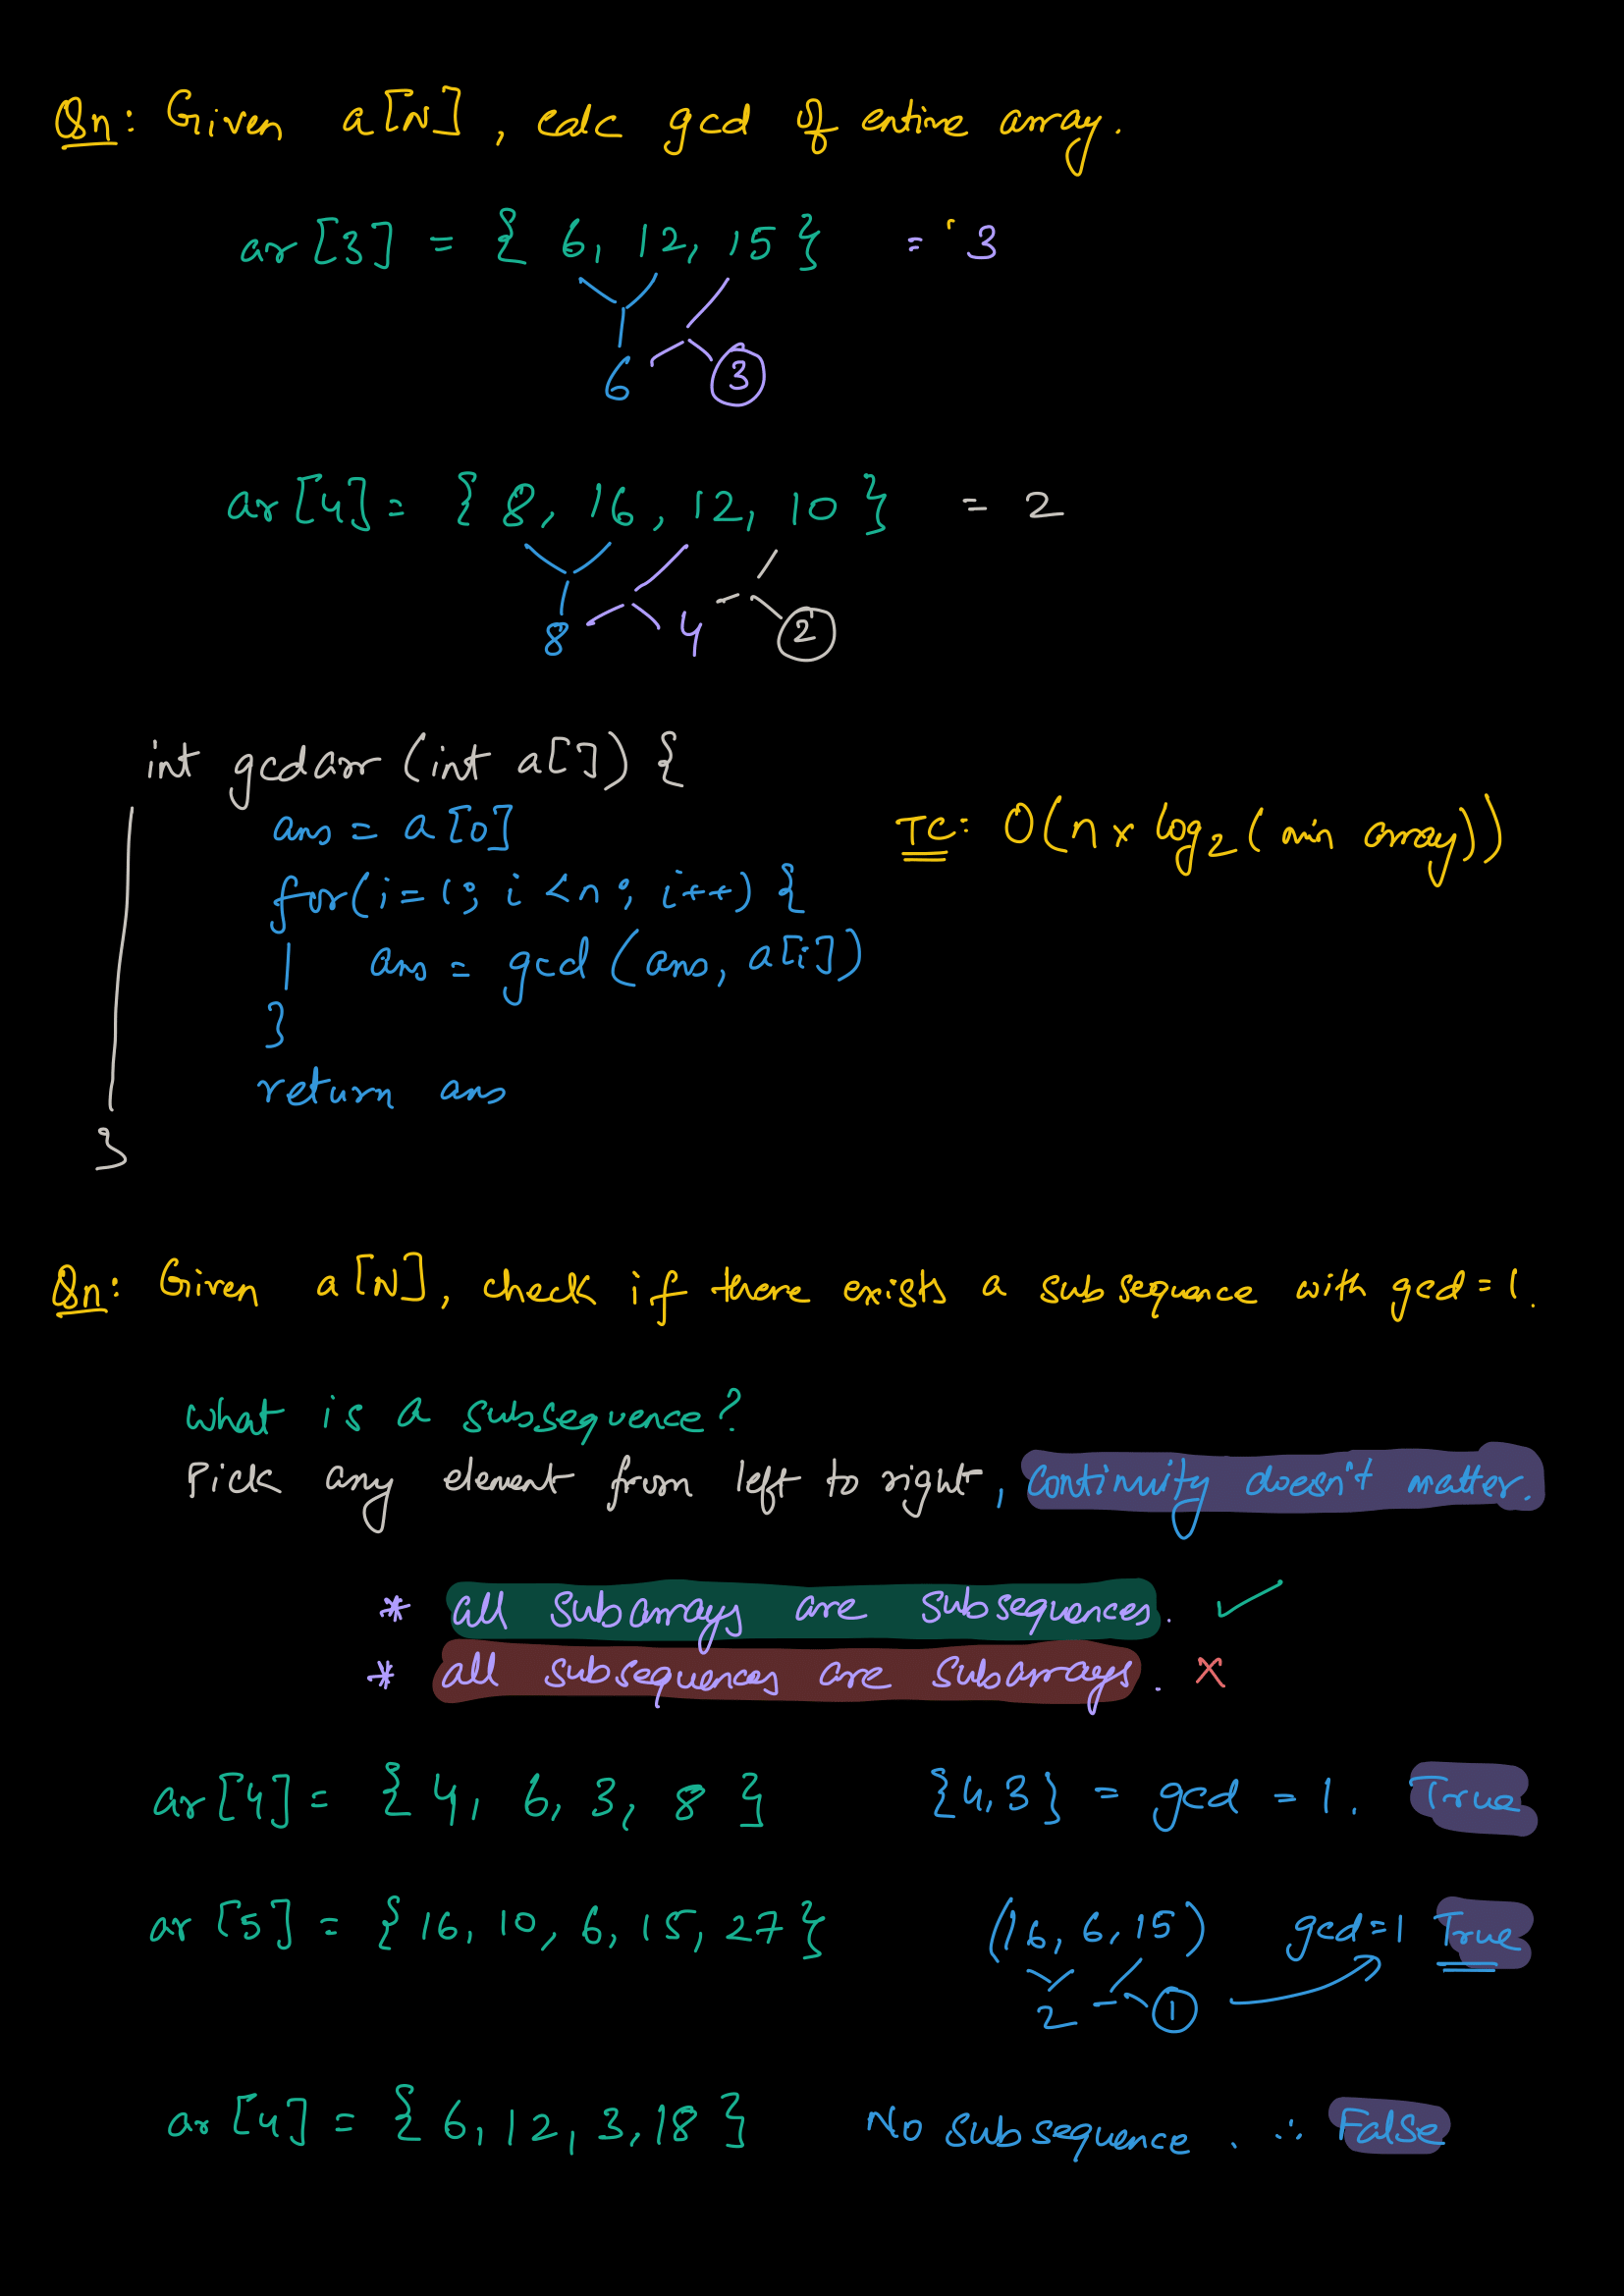 Qn: Given a[N], calc gcd of entire array.
ar[3] = { 6, 12, 15 } = 3
6 3
ar[4] = { 8, 16, 12, 10 } = 2
8 4 2
int gcdarr (int a[]) {
ans = a[0]
TC: O(n x log2 (min array))
for(i=1; i<n; i++) {
ans = gcd (ans, a[i])
}
return ans
}
Qn: Given a[N], check if there exists a subsequence with gcd=1.
what is a subsequence?
Pick any element from left to right, continuity doesn't matter.
* all subarrays are subsequences. ✓
* all subsequences are subarrays. x
ar[4] = { 4, 6, 3, 8 } {4,3} = gcd = 1. True
ar[5] = { 16, 10, 6, 15, 27 } (16, 6, 15) gcd=1 True
2 1
ar[4] = { 6, 12, 3, 18 } No subsequence. ∴ False